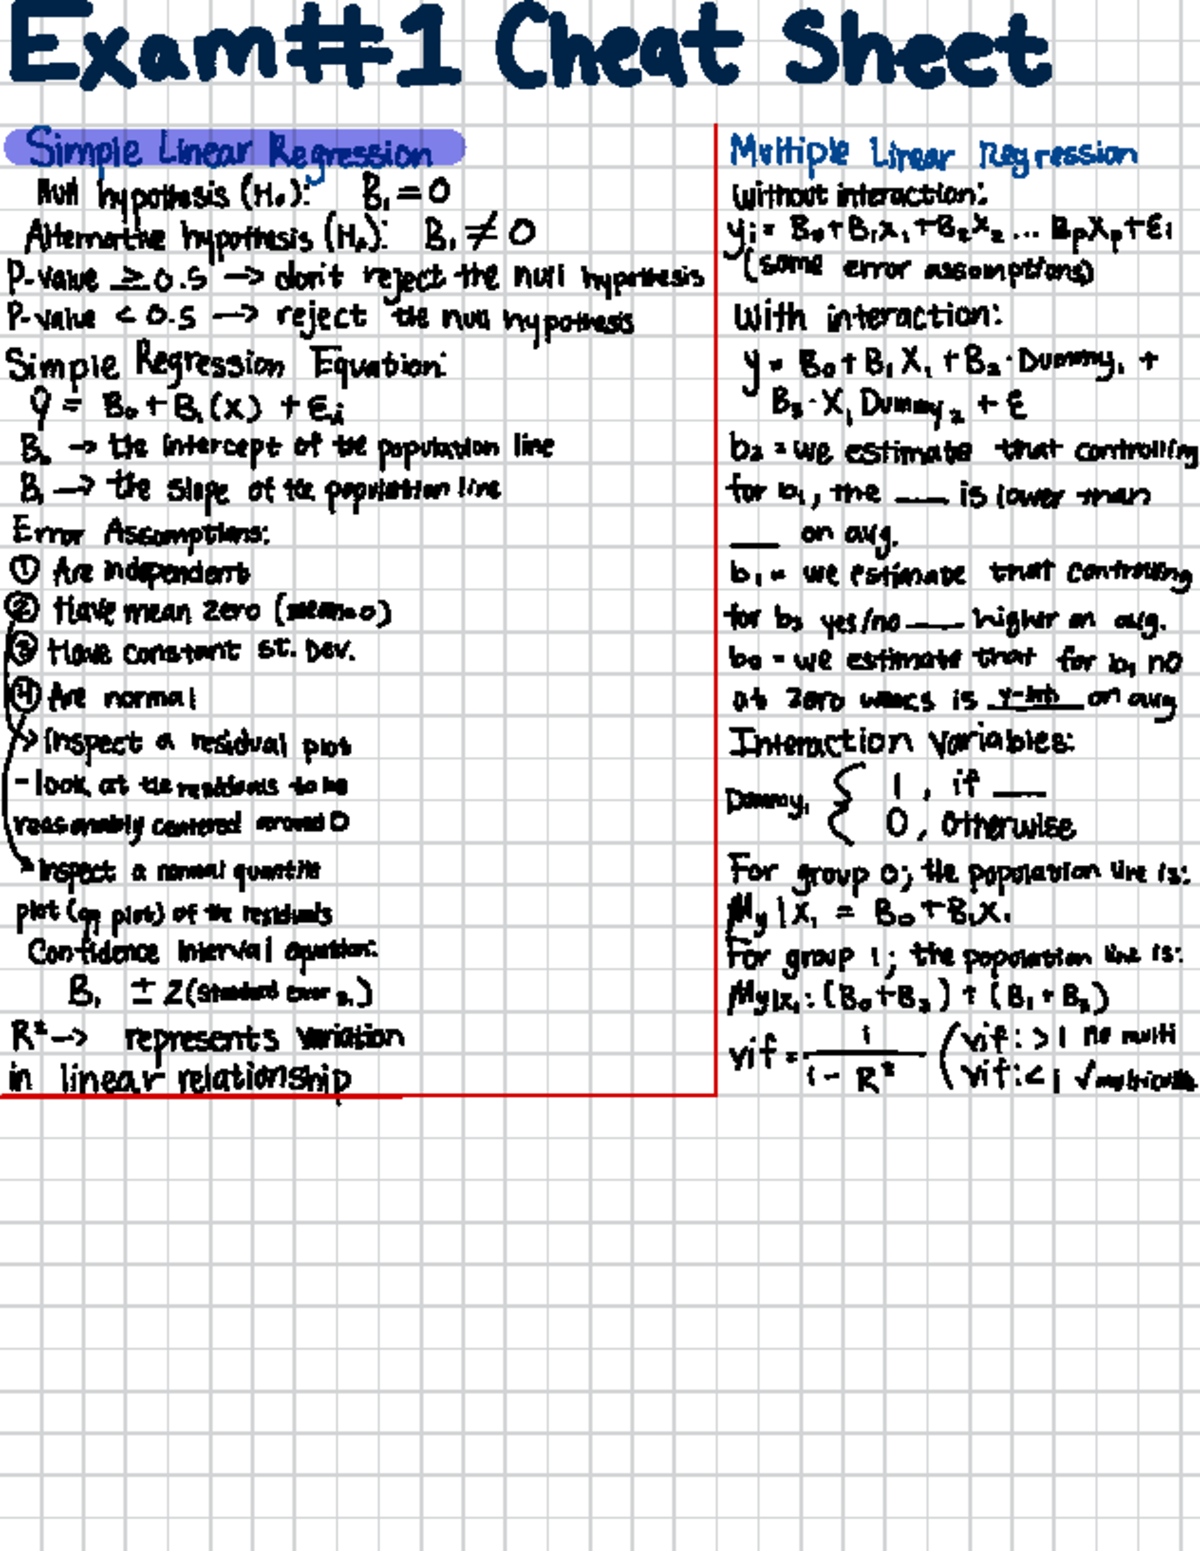 Exam#1 Cheat Sheet
Simple Linear Regression
Null hypothesis (H₀): B₁ = 0
Alternative hypothesis (Hₐ): B₁ ≠ 0
P-value ≥ 0.5 → don't reject the null hypothesis
P-value < 0.5 → reject the null hypothesis
Simple Regression Equation:
ŷ = B₀ + B₁(x) + Ɛi
B₀ → the intercept of the population line
B₁ → the slope of the population line
Error Assumptions:
① Are independent
② Have mean zero (mean=0)
③ Have constant st. Dev.
④ Are normal
→ Inspect a residual plot
- look at the residuals to be
reasonably centered around 0
→ Inspect a normal quantile
plot (qq plot) of the residuals
Confidence Interval equation:
B₁ ± 2(standard error)
R² → represents variation
in linear relationship
Multiple Linear Regression
Without interaction:
yi = B₀ + B₁x₁ + B₂x₂ ... BpXp + Ɛi
(same error assumptions)
With interaction:
y = B₀ + B₁X₁ + B₂·Dummy₁ +
B₃·X₁Dummy₂ + Ɛ
b₂ = we estimate that controlling
for b₁, the ___ is lower than
___ on avg.
b₁ = we estimate that controlling
for b₂ yes/no ___ higher on avg.
b₀ = we estimate that for b₁ no
at zero is y-int on avg
Interaction variables:
Dummy₁ { 1, if ___
0, otherwise
For group 0; the population line is:
My|X₁ = B₀ + B₁X₁
For group 1; the population line is:
My|X₁: (B₀ + B₂) + (B₁ + B₃)
vif = 1 / (1 - R²) (vif: > 1 no multi
vif: < 1 √